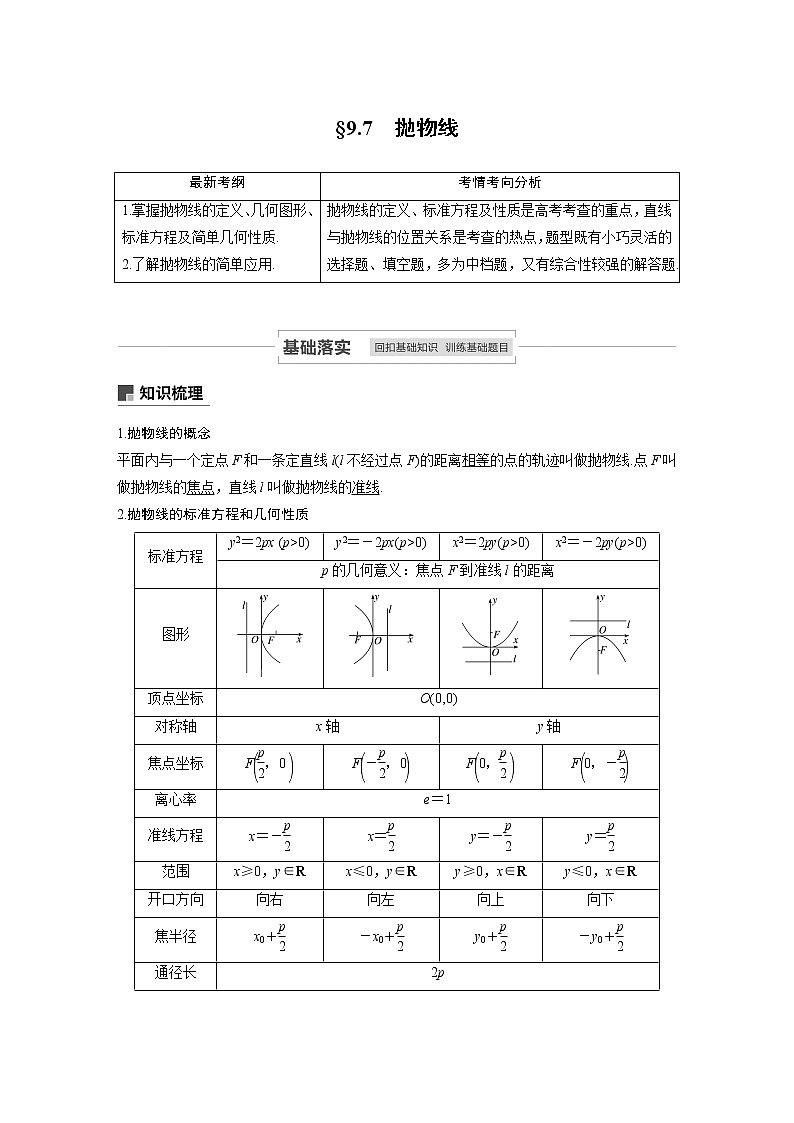 §9.7 抛物线
最新考纲 考情考向分析
1.掌握抛物线的定义、几何图形、标准方程及简单几何性质.
2.了解抛物线的简单应用.
抛物线的定义、标准方程及性质是高考考查的重点，直线与抛物线的位置关系是考查的热点，题型既有小巧灵活的选择题、填空题，多为中档题，又有综合性较强的解答题.
基础落实 回扣基础知识 训练基础题目
知识梳理
1.抛物线的概念
平面内与一个定点F和一条定直线l(l不经过点F)的距离相等的点的轨迹叫做抛物线.点F叫
做抛物线的焦点，直线l叫做抛物线的准线.
2.抛物线的标准方程和几何性质
标准方程 y²＝2px (p>0) y²＝－2px(p>0) x²＝2py(p>0) x²＝－2py(p>0)
p的几何意义：焦点F到准线l的距离
图形 l y O F x F O x y l y F x O l y O l x F
顶点坐标 O(0,0)
对称轴 x轴 y轴
焦点坐标 F(p/2，0) F(－p/2，0) F(0，p/2) F(0，－p/2)
离心率 e＝1
准线方程 x＝－p/2 x＝p/2 y＝－p/2 y＝p/2
范围 x≥0，y∈R x≤0，y∈R y≥0，x∈R y≤0，x∈R
开口方向 向右 向左 向上 向下
焦半径 x₀＋p/2 －x₀＋p/2 y₀＋p/2 －y₀＋p/2
通径长 2p